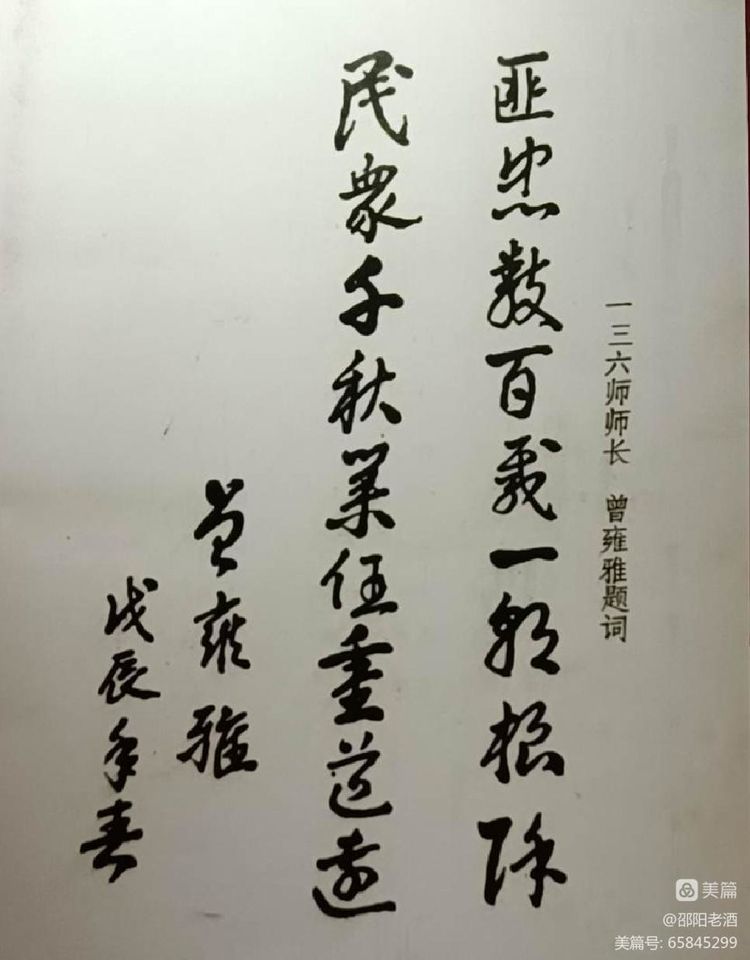 一三六师师长 曾雍雅题词
匪患数百载一朝根除
民众千秋业任重道远
曾雍雅
戊辰年春
美篇
@邵阳老酒
美篇号: 65845299